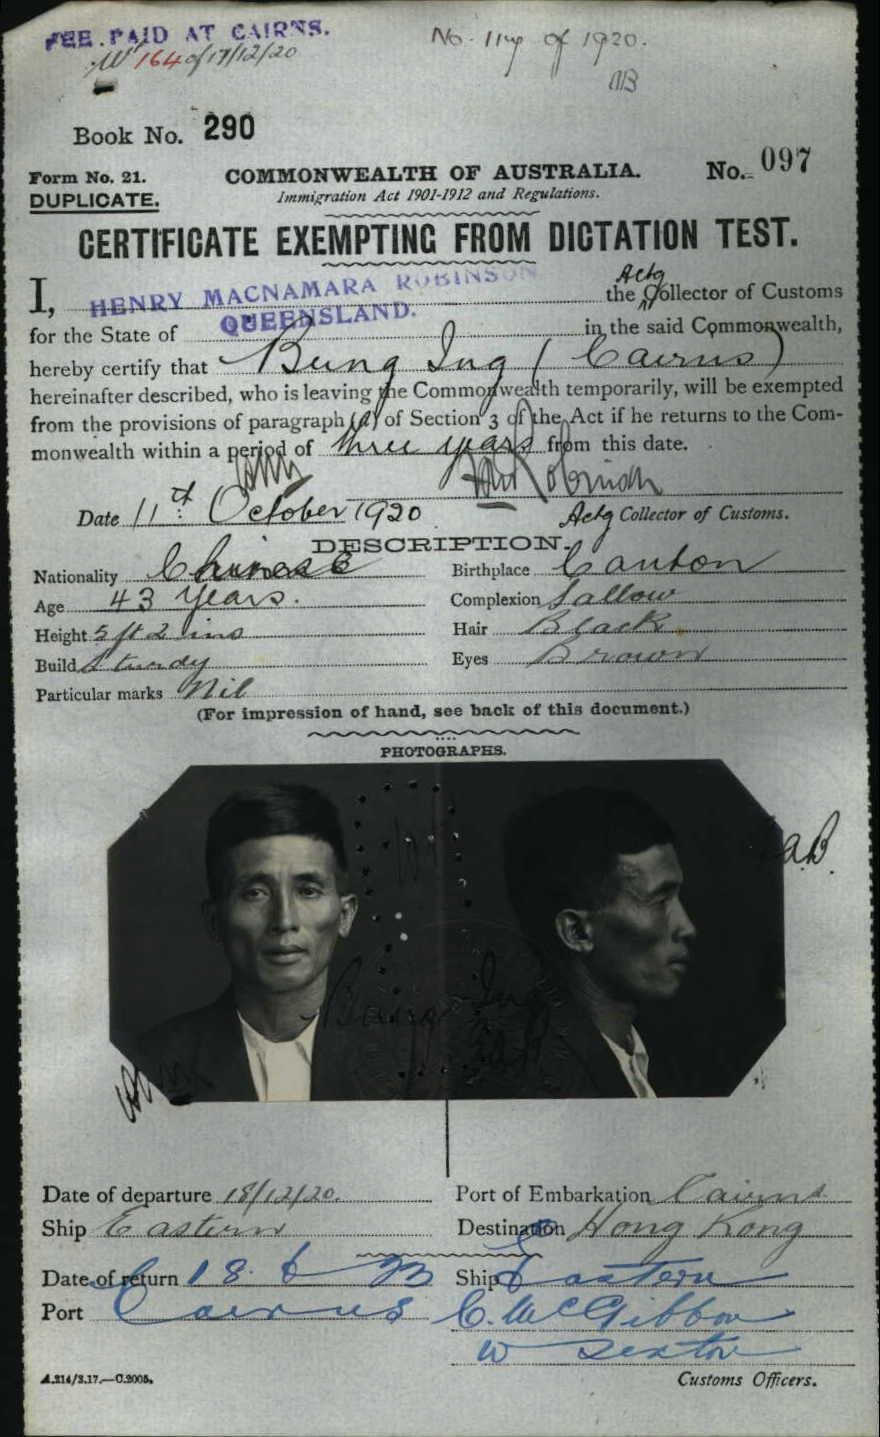 FEE PAID AT CAIRNS.
No 164 of 17/12/20
No. 114 of 1920.
Book No. 290
Form No. 21.
DUPLICATE.
COMMONWEALTH OF AUSTRALIA.
No. 097
Immigration Act 1901-1912 and Regulations.
CERTIFICATE EXEMPTING FROM DICTATION TEST.
I, HENRY MACNAMARA ROBINSON the Actg Collector of Customs
for the State of QUEENSLAND. in the said Commonwealth,
hereby certify that Bung Ing (Cairns)
hereinafter described, who is leaving the Commonwealth temporarily, will be exempted
from the provisions of paragraph (a) of Section 3 of the Act if he returns to the Com-
monwealth within a period of three years from this date.
Date 11th October 1920
Actg Collector of Customs.
DESCRIPTION.
Nationality Chinese Birthplace Canton
Age 43 years. Complexion Sallow
Height 5 ft 2 ins Hair Black
Build Sturdy Eyes Brown
Particular marks Nil
(For impression of hand, see back of this document.)
PHOTOGRAPHS.
Bung Ing
Date of departure 18/12/20. Port of Embarkation Cairns
Ship Eastern Destination Hong Kong
Date of return 18. 6 23 Ship Eastern
Port Cairns C. McGibbon
W Sexton
A.214/3.17.—C.2005. Customs Officers.